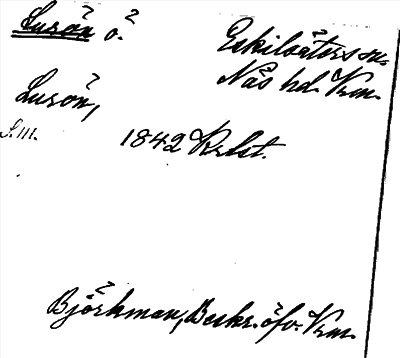 Lurön ö.
Eskilsäters sn.
Näs hd. Vrm.
Lurön,
S.m.
1842 Krbst.
Björkman, Beskr. öfv. Vrm.